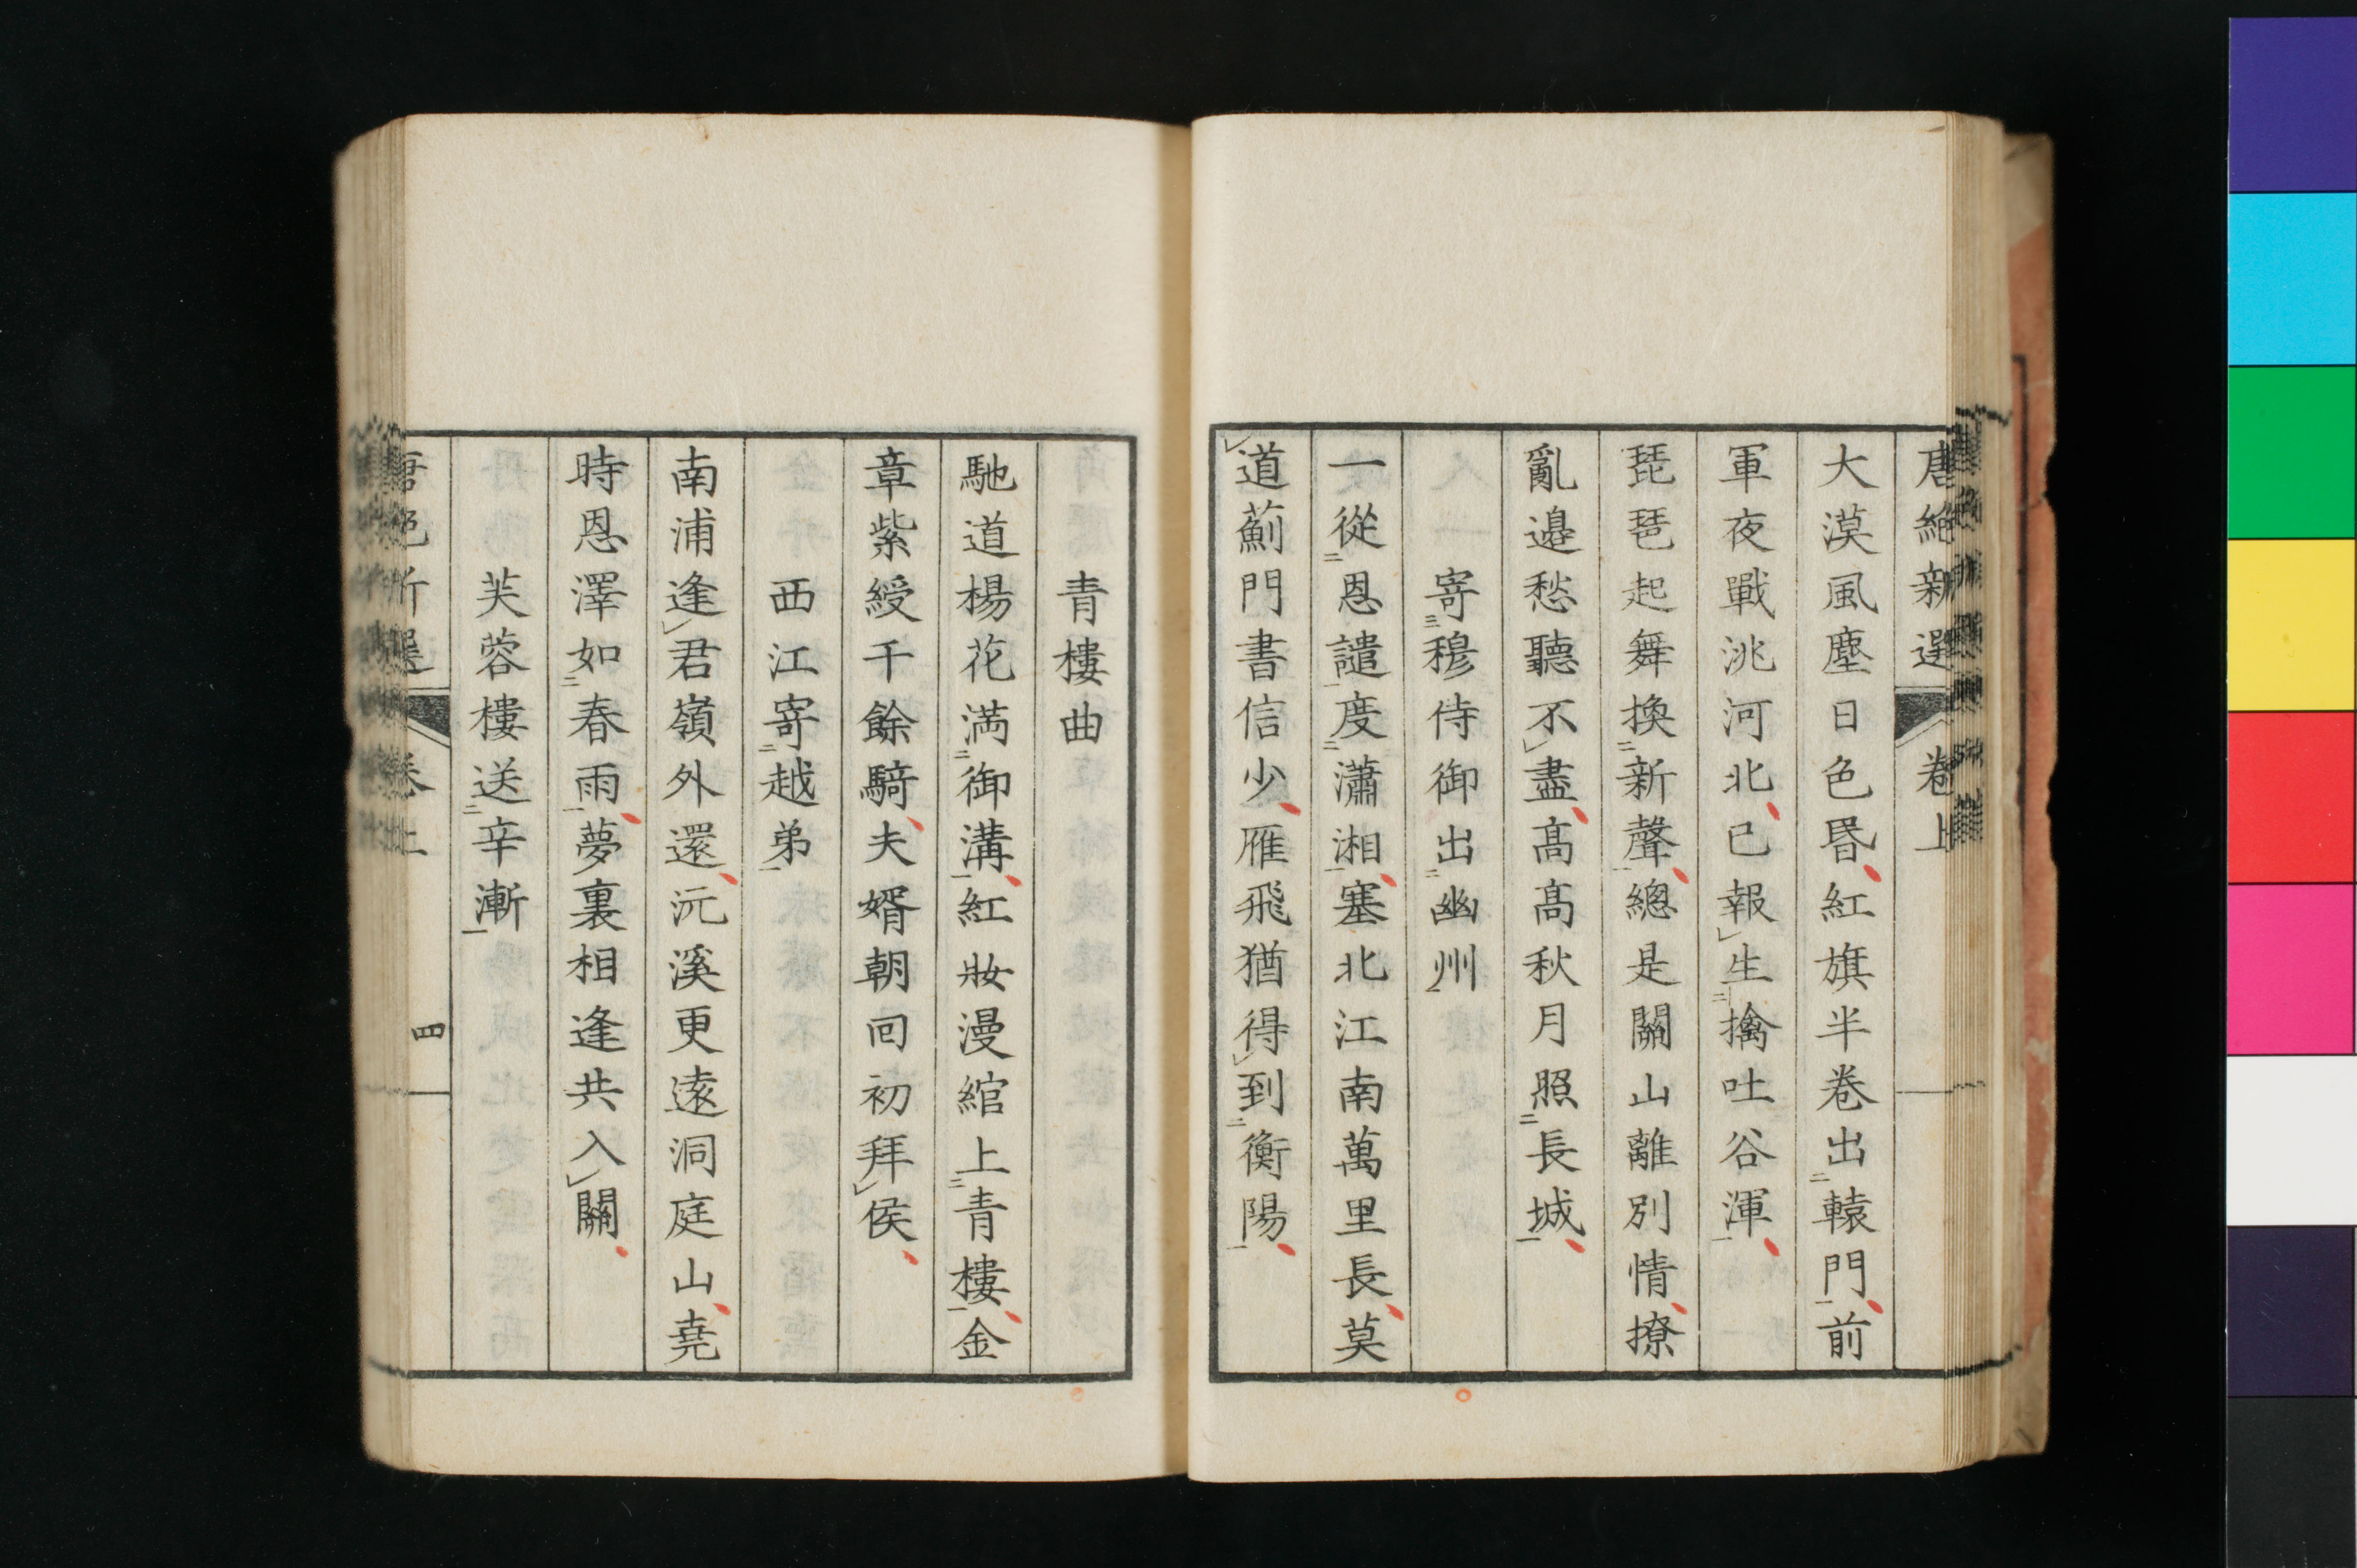 唐絶新選 卷上
大漠風塵日色昬紅旗半卷出轅門前
軍夜戰洮河北已報生擒吐谷渾
琵琶起舞換新聲總是關山離別情撩
亂邉愁聽不盡髙髙秋月照長城
寄穆侍御出幽州
一從恩譴度瀟湘塞北江南萬里長莫
道薊門書信少雁飛猶得到衡陽
青樓曲
馳道楊花満御溝紅妝漫綰上青樓金
章紫綬千餘騎夫婿朝回初拜侯
西江寄越弟
南浦逢君嶺外還沅溪更遠洞庭山堯
時恩澤如春雨夢裏相逢共入關
芙蓉樓送辛漸
卷上 四